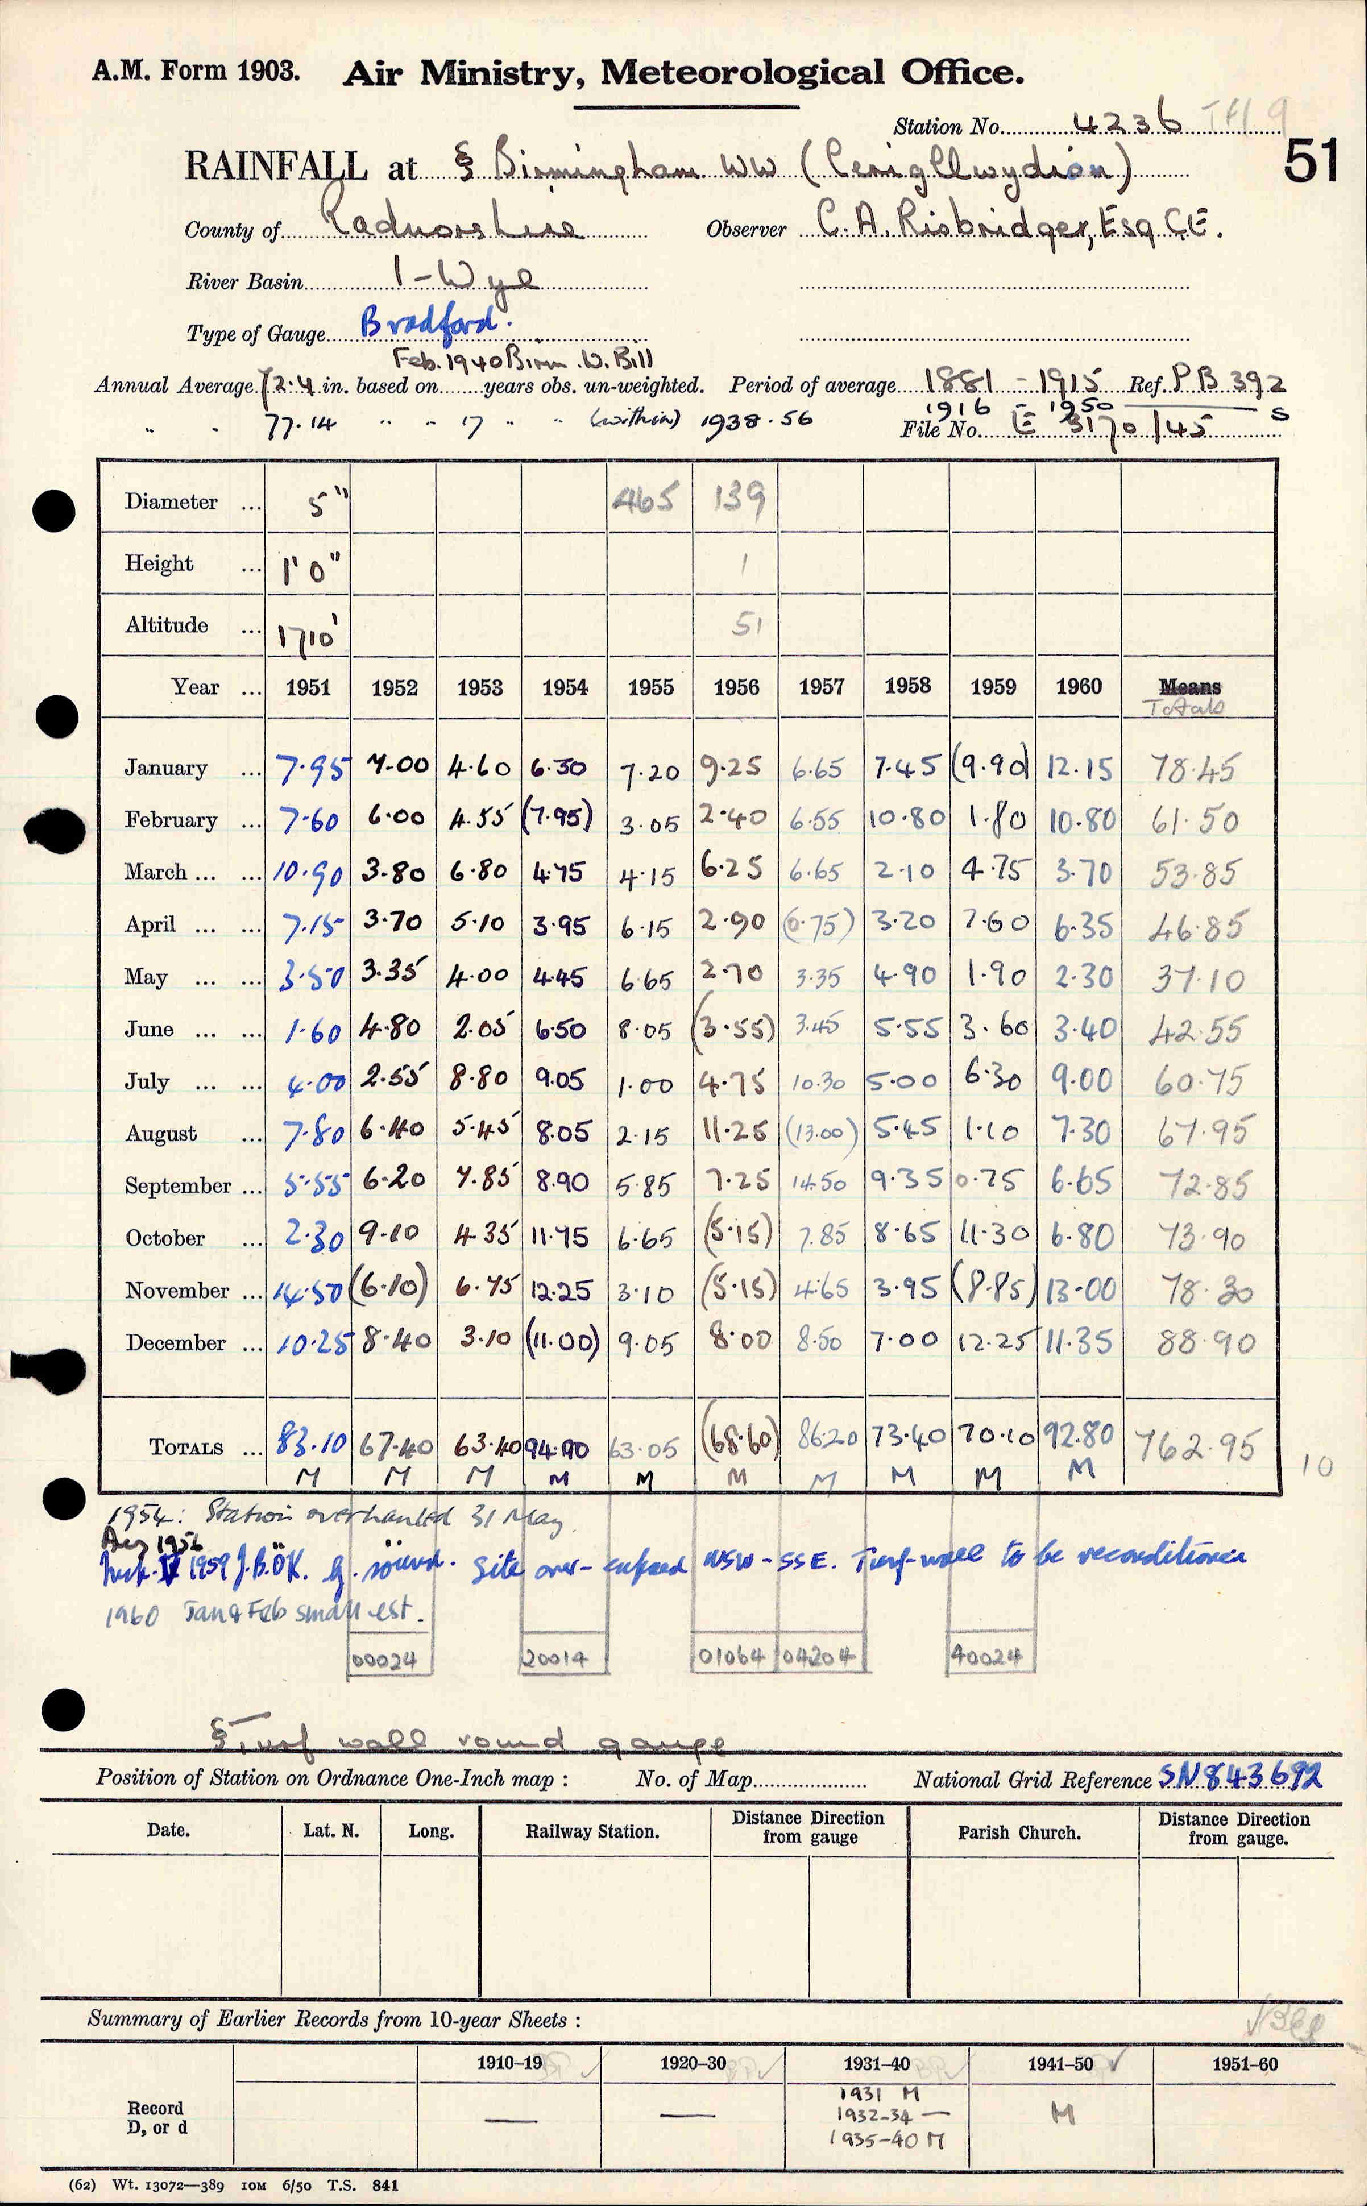 A.M. Form 1903. Air Ministry, Meteorological Office.
Station No. 4236 TH 9
51
RAINFALL at § Birmingham WW (Cerigllwydion)
County of Radnorshire Observer C. A. Risbridger, Esq C.E.
River Basin 1-Wye
Type of Gauge Bradford.
Feb. 1940 Birm. W. Bill
Annual Average 72.4 in. based on years obs. un-weighted. Period of average 1881 - 1915 Ref. P B 392
1916 - 1950 s
" " 77.14 " " " 17 " " (within) 1938-56 File No. E 3170/45
Diameter ... 5" 465 139
Height ... 1' 0" 1
Altitude ... 1710' 51
Year ... 1951 1952 1953 1954 1955 1956 1957 1958 1959 1960 Means
Totals
January ... 7.95 7.00 4.60 6.30 7.20 9.25 6.65 7.45 (9.90) 12.15 78.45
February ... 7.60 6.00 4.55 (7.95) 3.05 2.40 6.55 10.80 1.80 10.80 61.50
March ... ... 10.90 3.80 6.80 4.75 4.15 6.25 6.65 2.10 4.75 3.70 53.85
April ... ... 7.15 3.70 5.10 3.95 6.15 2.90 (0.75) 3.20 7.60 6.35 46.85
May ... ... 3.50 3.35 4.00 4.45 6.65 2.70 3.35 4.90 1.90 2.30 37.10
June ... ... 1.60 4.80 2.05 6.50 8.05 (3.55) 3.45 5.55 3.60 3.40 42.55
July ... ... 4.00 2.55 8.80 9.05 1.00 4.75 10.30 5.00 6.30 9.00 60.75
August ... 7.80 6.40 5.45 8.05 2.15 11.25 (13.00) 5.45 1.10 7.30 67.95
September ... 5.55 6.20 7.85 8.90 5.85 7.25 14.50 9.35 0.75 6.65 72.85
October ... 2.30 9.10 4.35 11.75 6.65 (5.15) 7.85 8.65 11.30 6.80 73.90
November ... 14.50 (6.10) 6.75 12.25 3.10 (5.15) 4.65 3.95 (8.85) 13.00 78.30
December ... 10.25 8.40 3.10 (11.00) 9.05 8.00 8.50 7.00 12.25 11.35 88.90
TOTALS ... 83.10 67.40 63.40 94.90 63.05 (68.60) 86.20 73.40 70.10 92.80 762.95 10
M M M M M M M M M M
1954: Station overhauled 31 May.
Aug 1956
Insp. IV 1959 J.B. OK. g. sound. Site over-exposed WSW-SSE. Turf-wall to be reconditioned
1960 Jan & Feb small est.
00024 20014 01064 04204 40024
§ Turf wall round gauge
Position of Station on Ordnance One-Inch map : No. of Map National Grid Reference SN 843692
Date. Lat. N. Long. Railway Station. Distance Direction from gauge Parish Church. Distance Direction from gauge.
Summary of Earlier Records from 10-year Sheets :
1910-19 1920-30 1931-40 1941-50 1951-60
Record D, or d — — 1931 M M
1932-34 —
1935-40 M
(62) Wt. 13072—389 10M 6/50 T.S. 841